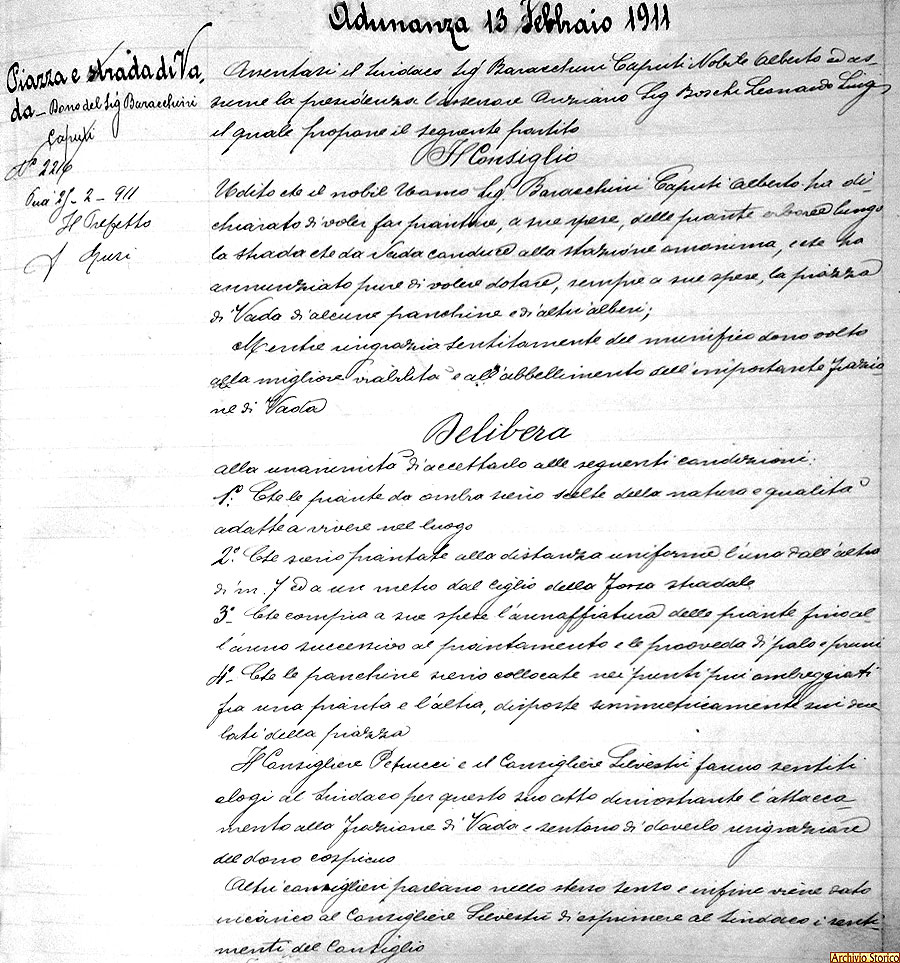 Adunanza 13 Febbraio 1911
Piazza e strada di Va,
da - Dono del Sig Baracchini
Caputi
N° 2216
Pisa 25 - 2 - 911
Il Prefetto
Assentasi il Sindaco Sig Baracchini Caputi Nobile Alberto ed as-
sume la presidenza l'assessore Anziano Sig Boschi Leonardo Luigi
il quale propone il seguente partito
Il Consiglio
Udito che il nobil Uomo Sig. Baracchini Caputi Alberto ha di-
chiarato di voler far piantare, a sue spese, delle piante arboree lungo
la strada che da Vada conduce alla stazione omonima, e che ha
annunziato pure di volere dotare, sempre a sue spese, la piazza
di Vada di alcune panchine e di altri alberi;
Mentre ringrazia sentitamente del munifico dono volto
alla migliore viabilità e all'abbellimento dell'importante frazio-
ne di Vada
Delibera
alla unanimità di accettarlo alle seguenti condizioni:
1°. Che le piante da ombra sieno scelte della natura e qualità
adatte a vivere nel luogo
2°. Che sieno piantate alla distanza uniforme l'una dall'altra
di m. 7 ed a un metro dal ciglio della fossa stradale
3° Che compia a sue spese l'annaffiatura delle piante fino al-
l'anno successivo al piantamento e le provveda di palo e pruni
4°. Che le panchine sieno collocate nei punti più ombreggiati
fra una pianta e l'altra, disposte simmetricamente sui due
lati della piazza
Il Consigliere Petrucci e il Consigliere Silvestri fanno sentiti
elogi al Sindaco per questo suo atto dimostrante l'attacca-
mento alla frazione di Vada e sentono di doverlo ringraziare
del dono cospicuo
Altri consiglieri parlano nello stesso senso e infine viene dato
incarico al Consigliere Silvestri di esprimere al Sindaco i senti-
menti del Consiglio
Archivio Storico